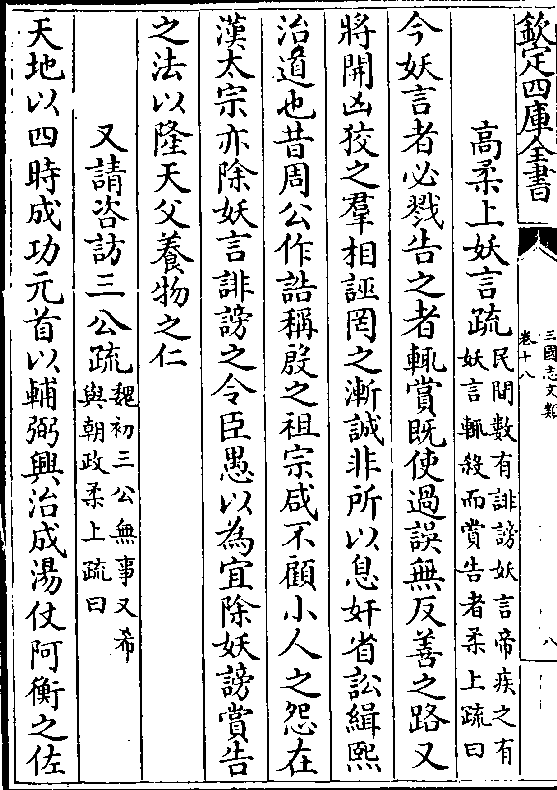 欽定四庫全書
三國志文類
卷十八
八
高柔上妖言疏民間數有誹謗妖言帝疾之有
妖言輒殺而賞告者柔上疏曰
今妖言者必戮告之者輒賞既使過誤無反善之路又
將開凶狡之羣相誣罔之漸誠非所以息奸省訟緝熙
治道也昔周公作誥稱殷之祖宗咸不顧小人之怨在
漢太宗亦除妖言誹謗之令臣愚以為宜除妖謗賞告
之法以隆天父養物之仁
又請咨訪三公疏魏初三公無事又希
與朝政柔上疏曰
天地以四時成功元首以輔弼興治成湯仗阿衡之佐